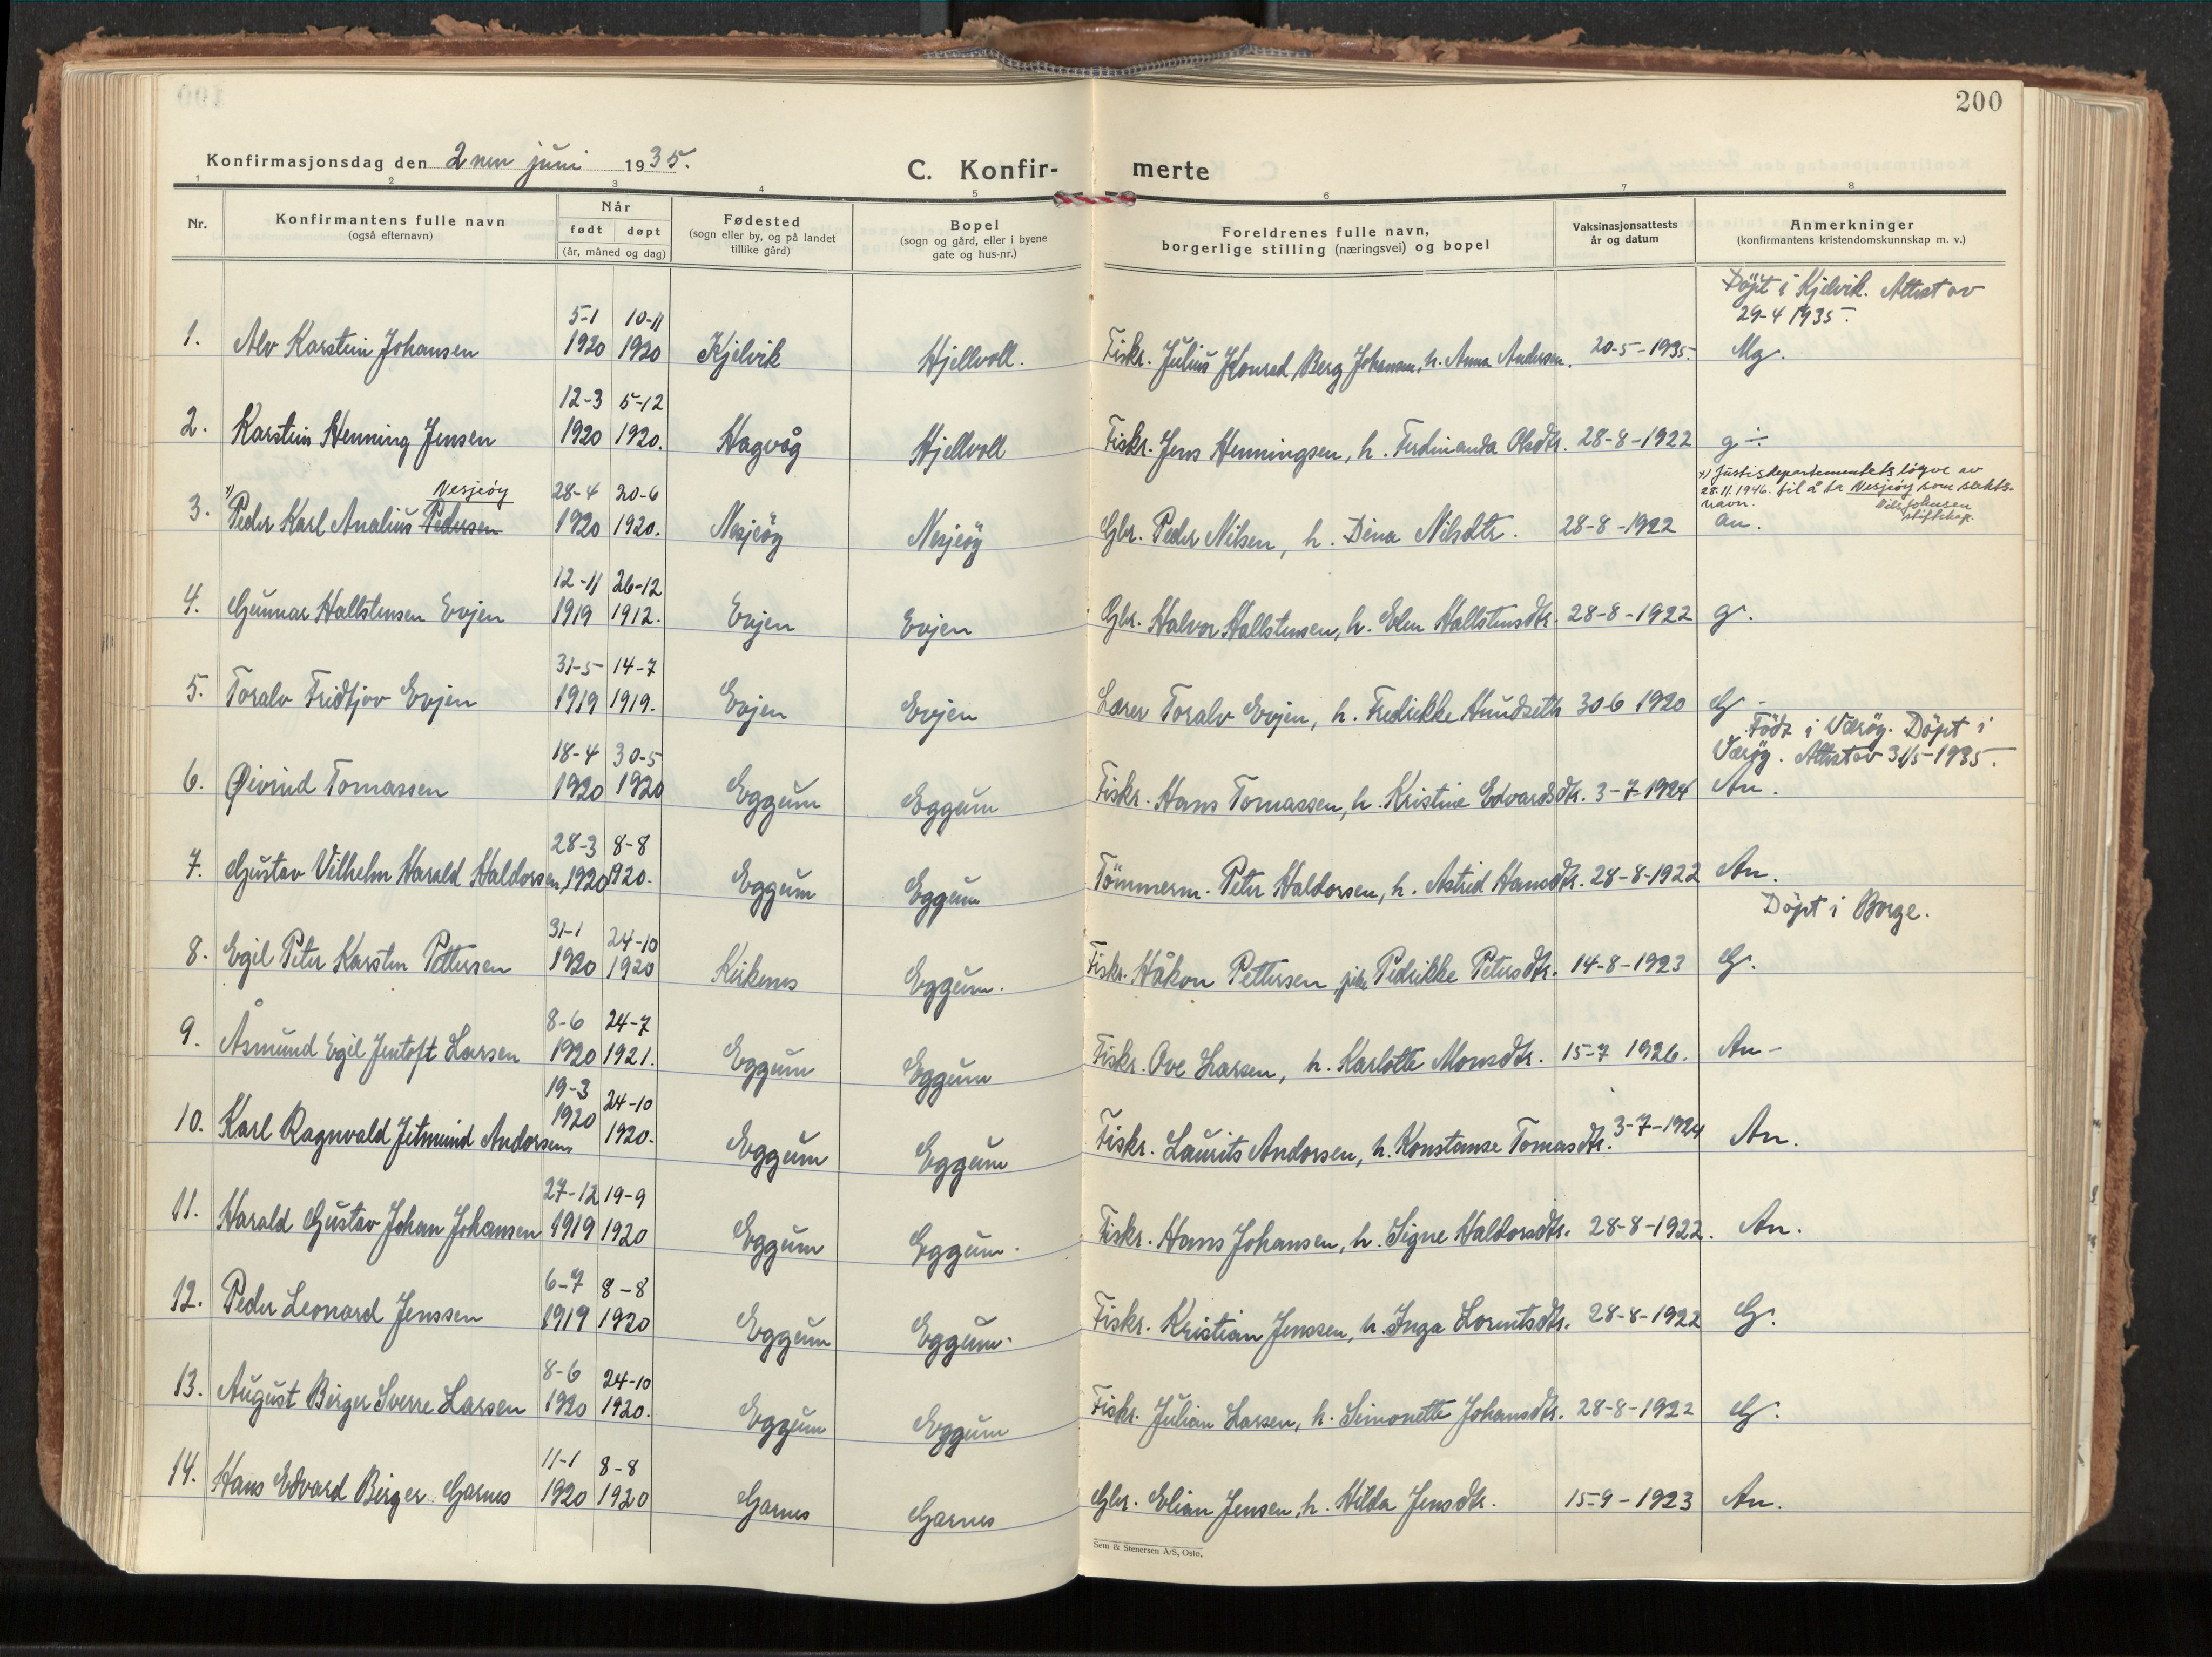 200
Konfirmasjonsdag den 2nen juni 1935.
C. Konfir- merte
1 2 3 4 5 6 7 8
Nr.
Konfirmantens fulle navn
(også efternavn)
Når
født døpt
(år, måned og dag)
Fødested
(sogn eller by, og på landet
tillike gård)
Bopel
(sogn og gård, eller i byene
gate og hus-nr.)
Foreldrenes fulle navn,
borgerlige stilling (næringsvei) og bopel
Vaksinasjonsattests
år og datum
Anmerkninger
(konfirmantens kristendomskunnskap m. v.)
Döpt i Kjelvik. Attest av
29-4 1935.
5-1 10-11
1. Alv Karstein Johansen 1920 1920 Kjelvik Hjellvoll. Fiskr. Julius Konrad Berg Johansen, h. Anna Andersen. 20-5-1935. Mg.
12-3 5-12
2. Karstein Henning Jensen 1920 1920. Hagvåg Hjellvoll Fiskr. Jens Henningsen, h. Ferdinanda Olsdtr. 28-8-1922 g ÷
x) Justisdepartementets løyve av
28.11.1946. til å ta Nesjeøy som slekts-
navn.
Nesjeøy 28-4 20-6
3. x) Peder Karl Analius Pedersen 1920 1920. Nesjeöy Nesjeöy Gbr. Peder Nilsen, h. Dina Nilsdtr. 28-8-1922 an.
12-11 26-12
4. Gunnar Hallstensen Evjen 1919 1912. Evjen Evjen Gbr. Halvor Hallstensen, h. Elen Hallstensdtr. 28-8-1922 g.
31-5 14-7
5. Toralv Fridtjov Evjen 1919 1919. Evjen Evjen Lærer Toralv Evjen, h. Fredrikke Hundseth 30-6 1920 G -
Födt iVæröy. Döpt i
Væröy. Attest av 31/5-1935.
18-4 30-5
6. Øivind Tomassen 1920 1920 Eggum Eggum Fiskr. Hans Tomassen, h. Kristine Edvardsdtr. 3-7-1924 An.
28-3 8-8
7. Gustav Vilhelm Harald Haldorsen, 1920 1920. Eggum Eggum Tömmerm. Peter Haldorsen, h. Astrid Hansdtr. 28-8-1922 An.
Döpt i Borge.
31-1 24-10
8. Egil Peter Karsten Pettersen 1920 1920 Kirkenes Eggum. Fiskr. Håkon Pettersen, pike Pedrikke Petersdtr. 14-8-1923 G.
8-6 24-7
9. Åsmund Egil Jentoft Larsen 1920 1921. Eggum Eggum Fiskr. Ove Larsen, h. Karlotte Monsdtr. 15-7 1926. An -
19-3 24-10
10. Karl Ragnvald Jetmund Andorsen 1920 1920. Eggum Eggum Fiskr. Laurits Andorsen, h. Konstanse Tomasdtr. 3-7-1924 An.
27-12 19-9
11. Harald Gustav Johan Johansen 1919 1920 Eggum Eggum. Fiskr. Hans Johansen, h. Signe Haldorsdtr. 28-8-1922. An.
6-7 8-8
12. Peder Leonard Jenssen 1919 1920 Eggum Eggum. Fiskr. Kristian Jenssen, h. Inga Lorentsdtr. 28-8-1922 G.
8-6 24-10
13. August Birger Sverre Larsen 1920 1920. Eggum Eggum Fiskr. Julian Larsen, h. Simonette Johansdtr. 28-8-1922 G.
11-1 8-8
14. Hans Edvard Birger Garnes 1920 1920 Garnes Garnes Gbr. Elian Jensen, h. Hilda Jensdtr. 15-9-1923 An.
Sem & Stenersen A/S, Oslo.